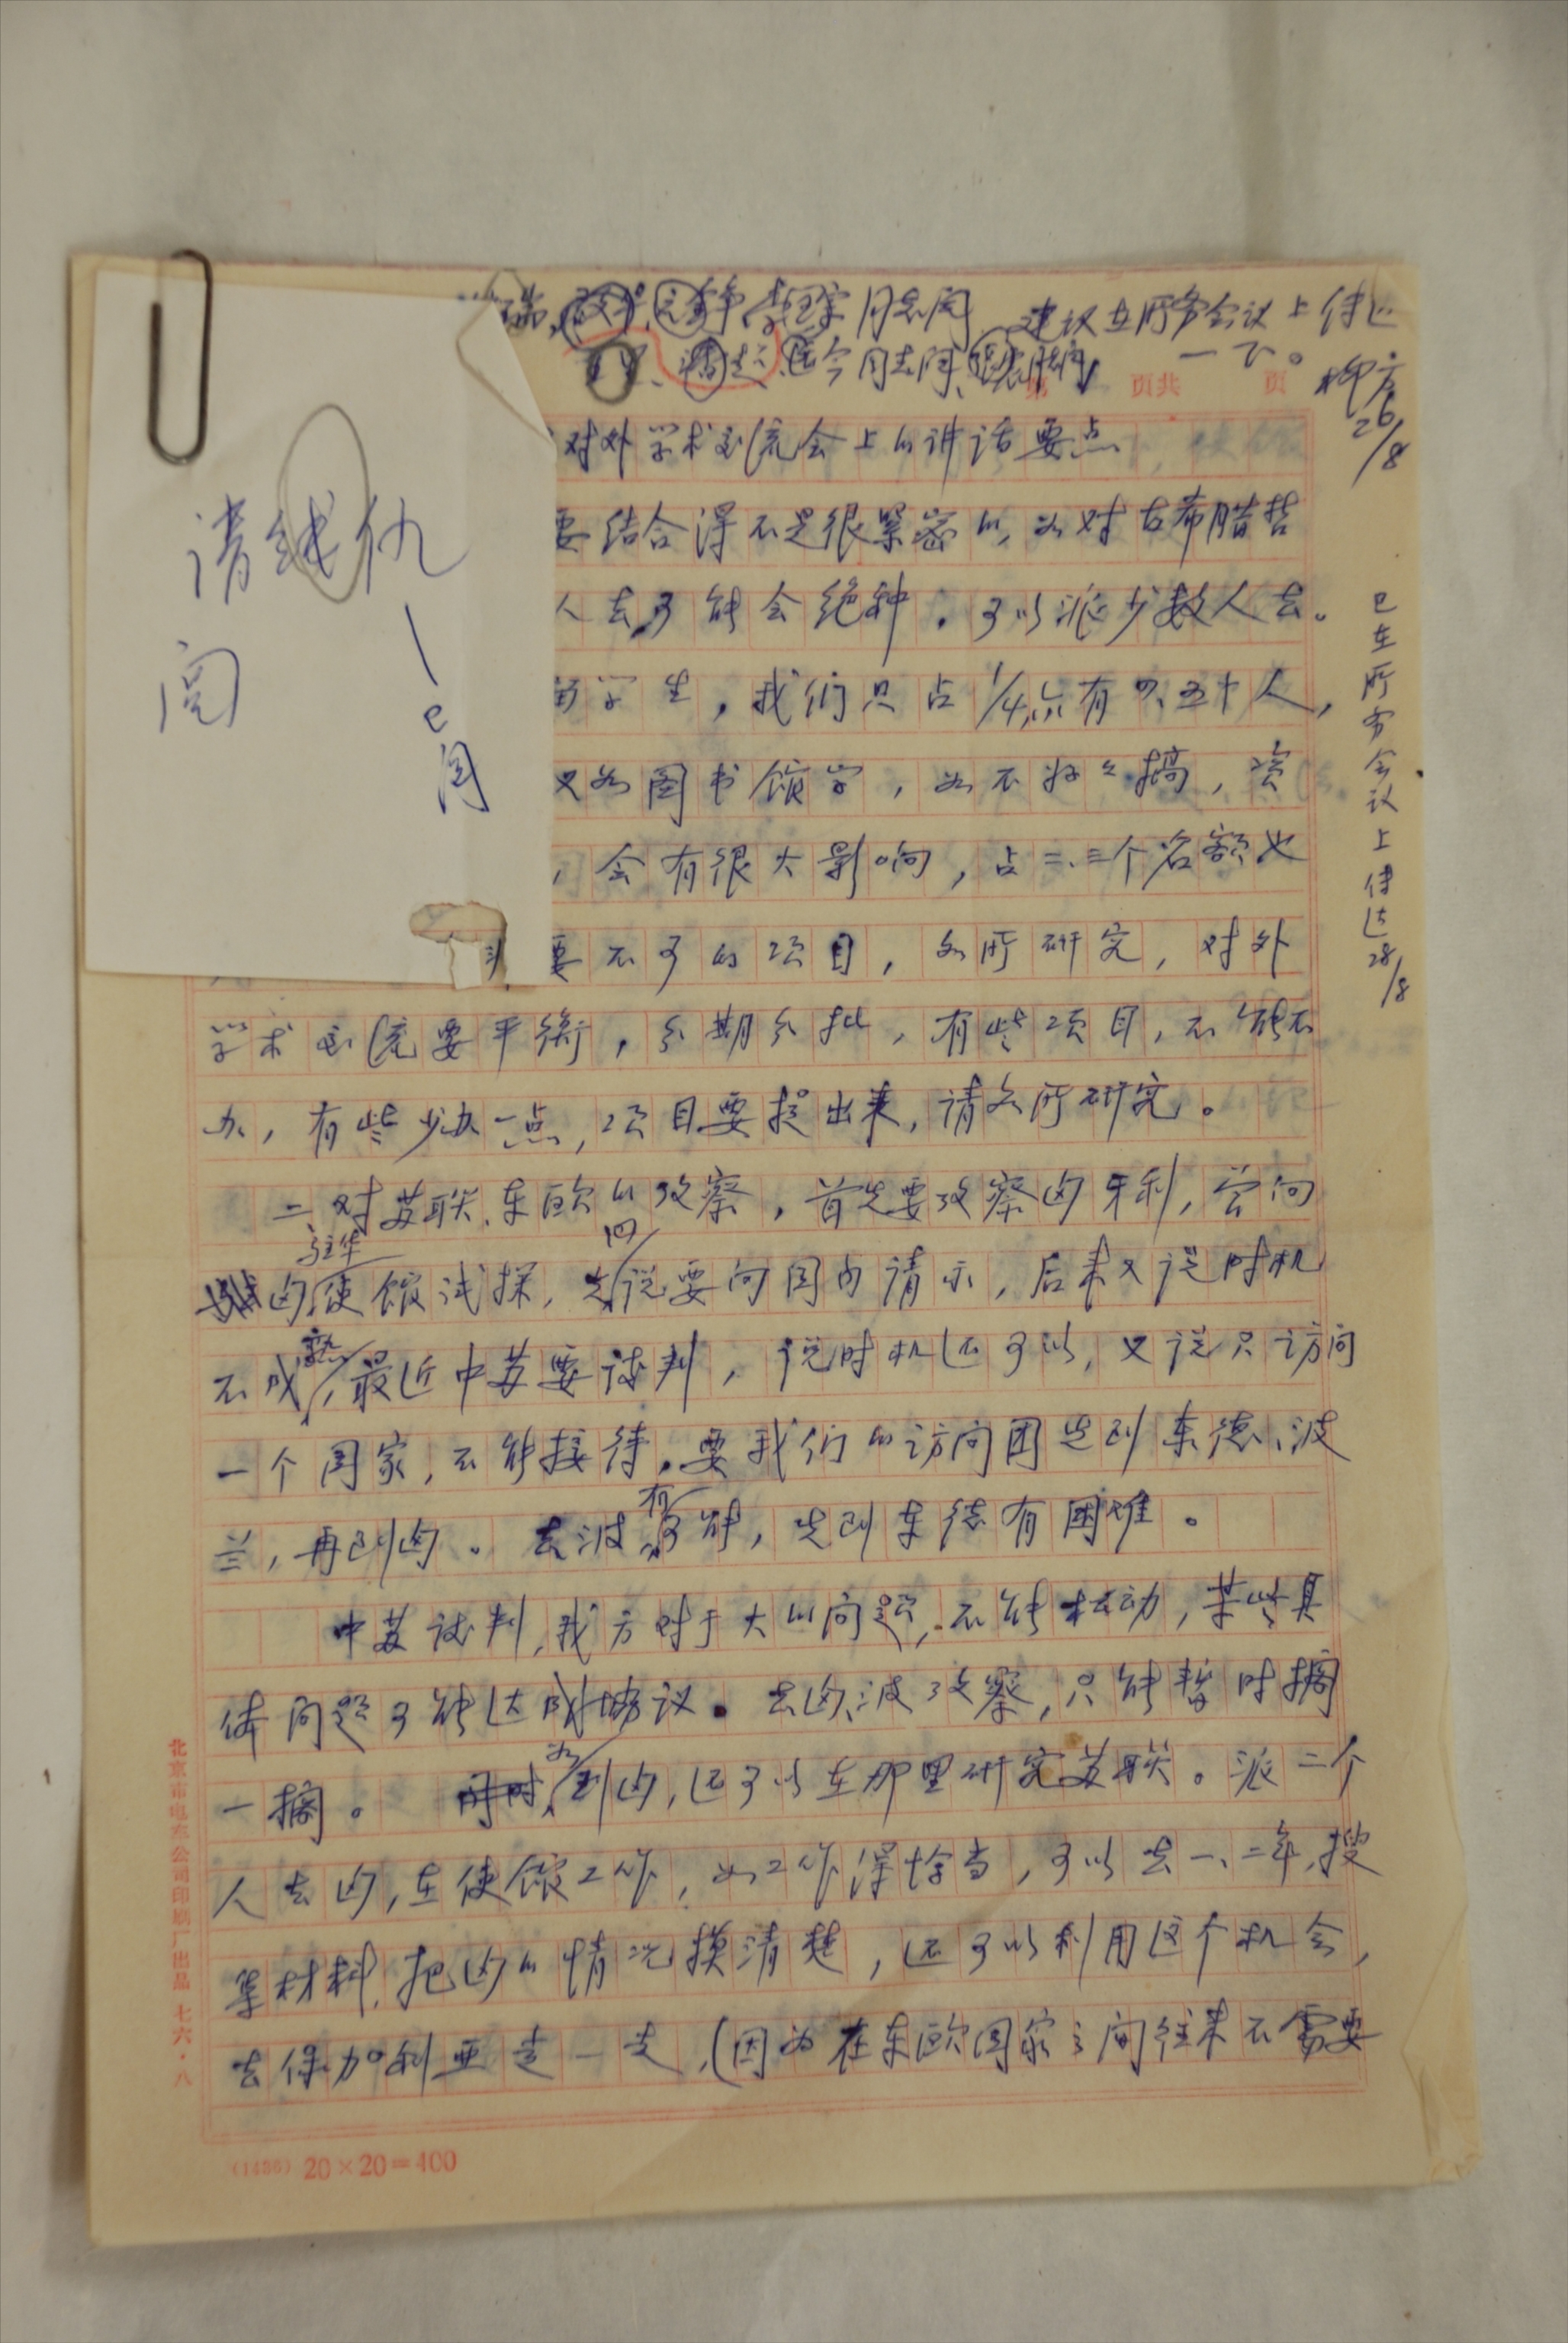 同志阅 建议在所务会议上传达
同志阅 一下。
第 页共 页
26/8
对外学术交流会上的讲话要点
要结合得不是很紧密的,如对古希腊哲
人去,可能会绝种。可以派少数人去。
学生,我们只占1/4,只有四、五十人,
又如图书馆学,如不好好搞,
,会有很大影响,占二、三个名额也
要不可的项目,各所研究,对外
学术交流要平衡,分期分批,有些项目,不能不
办,有些少办一点,项目要提出来,请各所研究。
二、对苏联、东欧的考察,首先要考察匈牙利,曾向
匈驻华使馆试探,先说要向国内请示,后来又说时机
不成熟,最近中苏要谈判,说时机还可以,又说只访问
一个国家,不能接待,要我们的访问团先到东德、波
兰,再到匈。去波有可能,先到东德有困难。
中苏谈判,我方对于大的问题,不能松动,某些具
体问题可能达成协议。去匈、波考察,只能暂时搁
一搁。如到匈,还可以在那里研究苏联。派二个
人去匈,在使馆工作,如工作得恰当,可以去一、二年,搜
集材料,把匈的情况摸清楚,还可以利用这个机会,
去保加利亚走一走,(因为在东欧国家之间往来不需要
已在所务会议上传达 28/8
请继仇
阅
已阅
北京市电车公司印刷厂出品 七六·八
(1486) 20×20=400